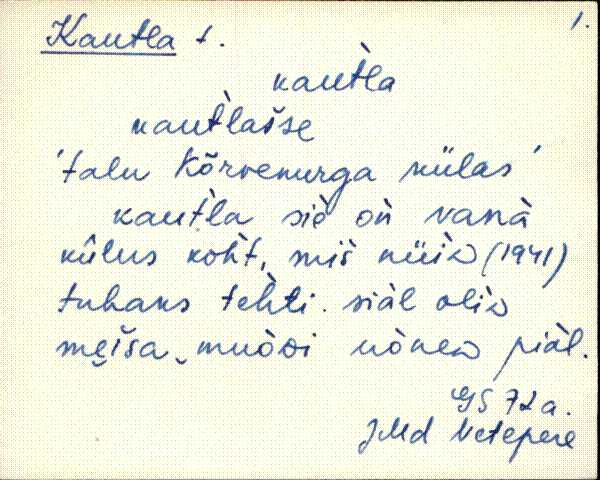 Kautla t.
1.
kautla
kautlasse
'talu Kõrvenurga külas'
kautla siè on vanà
kûlus koht, mis nüiD (1941)
tuhaks tehti. siàl oliD
mẹisa muòDi uòneD piàl.
GS 72 a.
JMd Vetepere